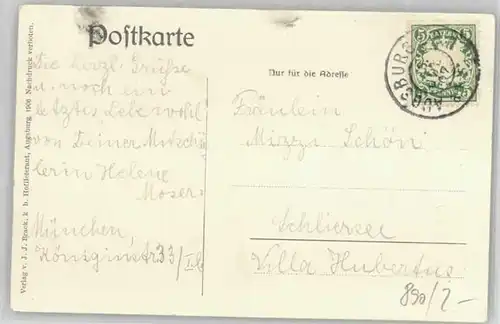 Postkarte
Nur für die Adresse
Die herzl. Grüße
u. noch ein
letztes Lebewohl
von Deiner Mitschü
lerin Helene
Moser.
München,
Königinstr 33/
Fräulein
Mizzi Schön
Schliersee
Villa Hubertus
890/2-
Verlag v. J. J. Brack, k. b. Hoflieferant, Augsburg. 1906 Nachdruck verboten.
5 5
AUGSBURG